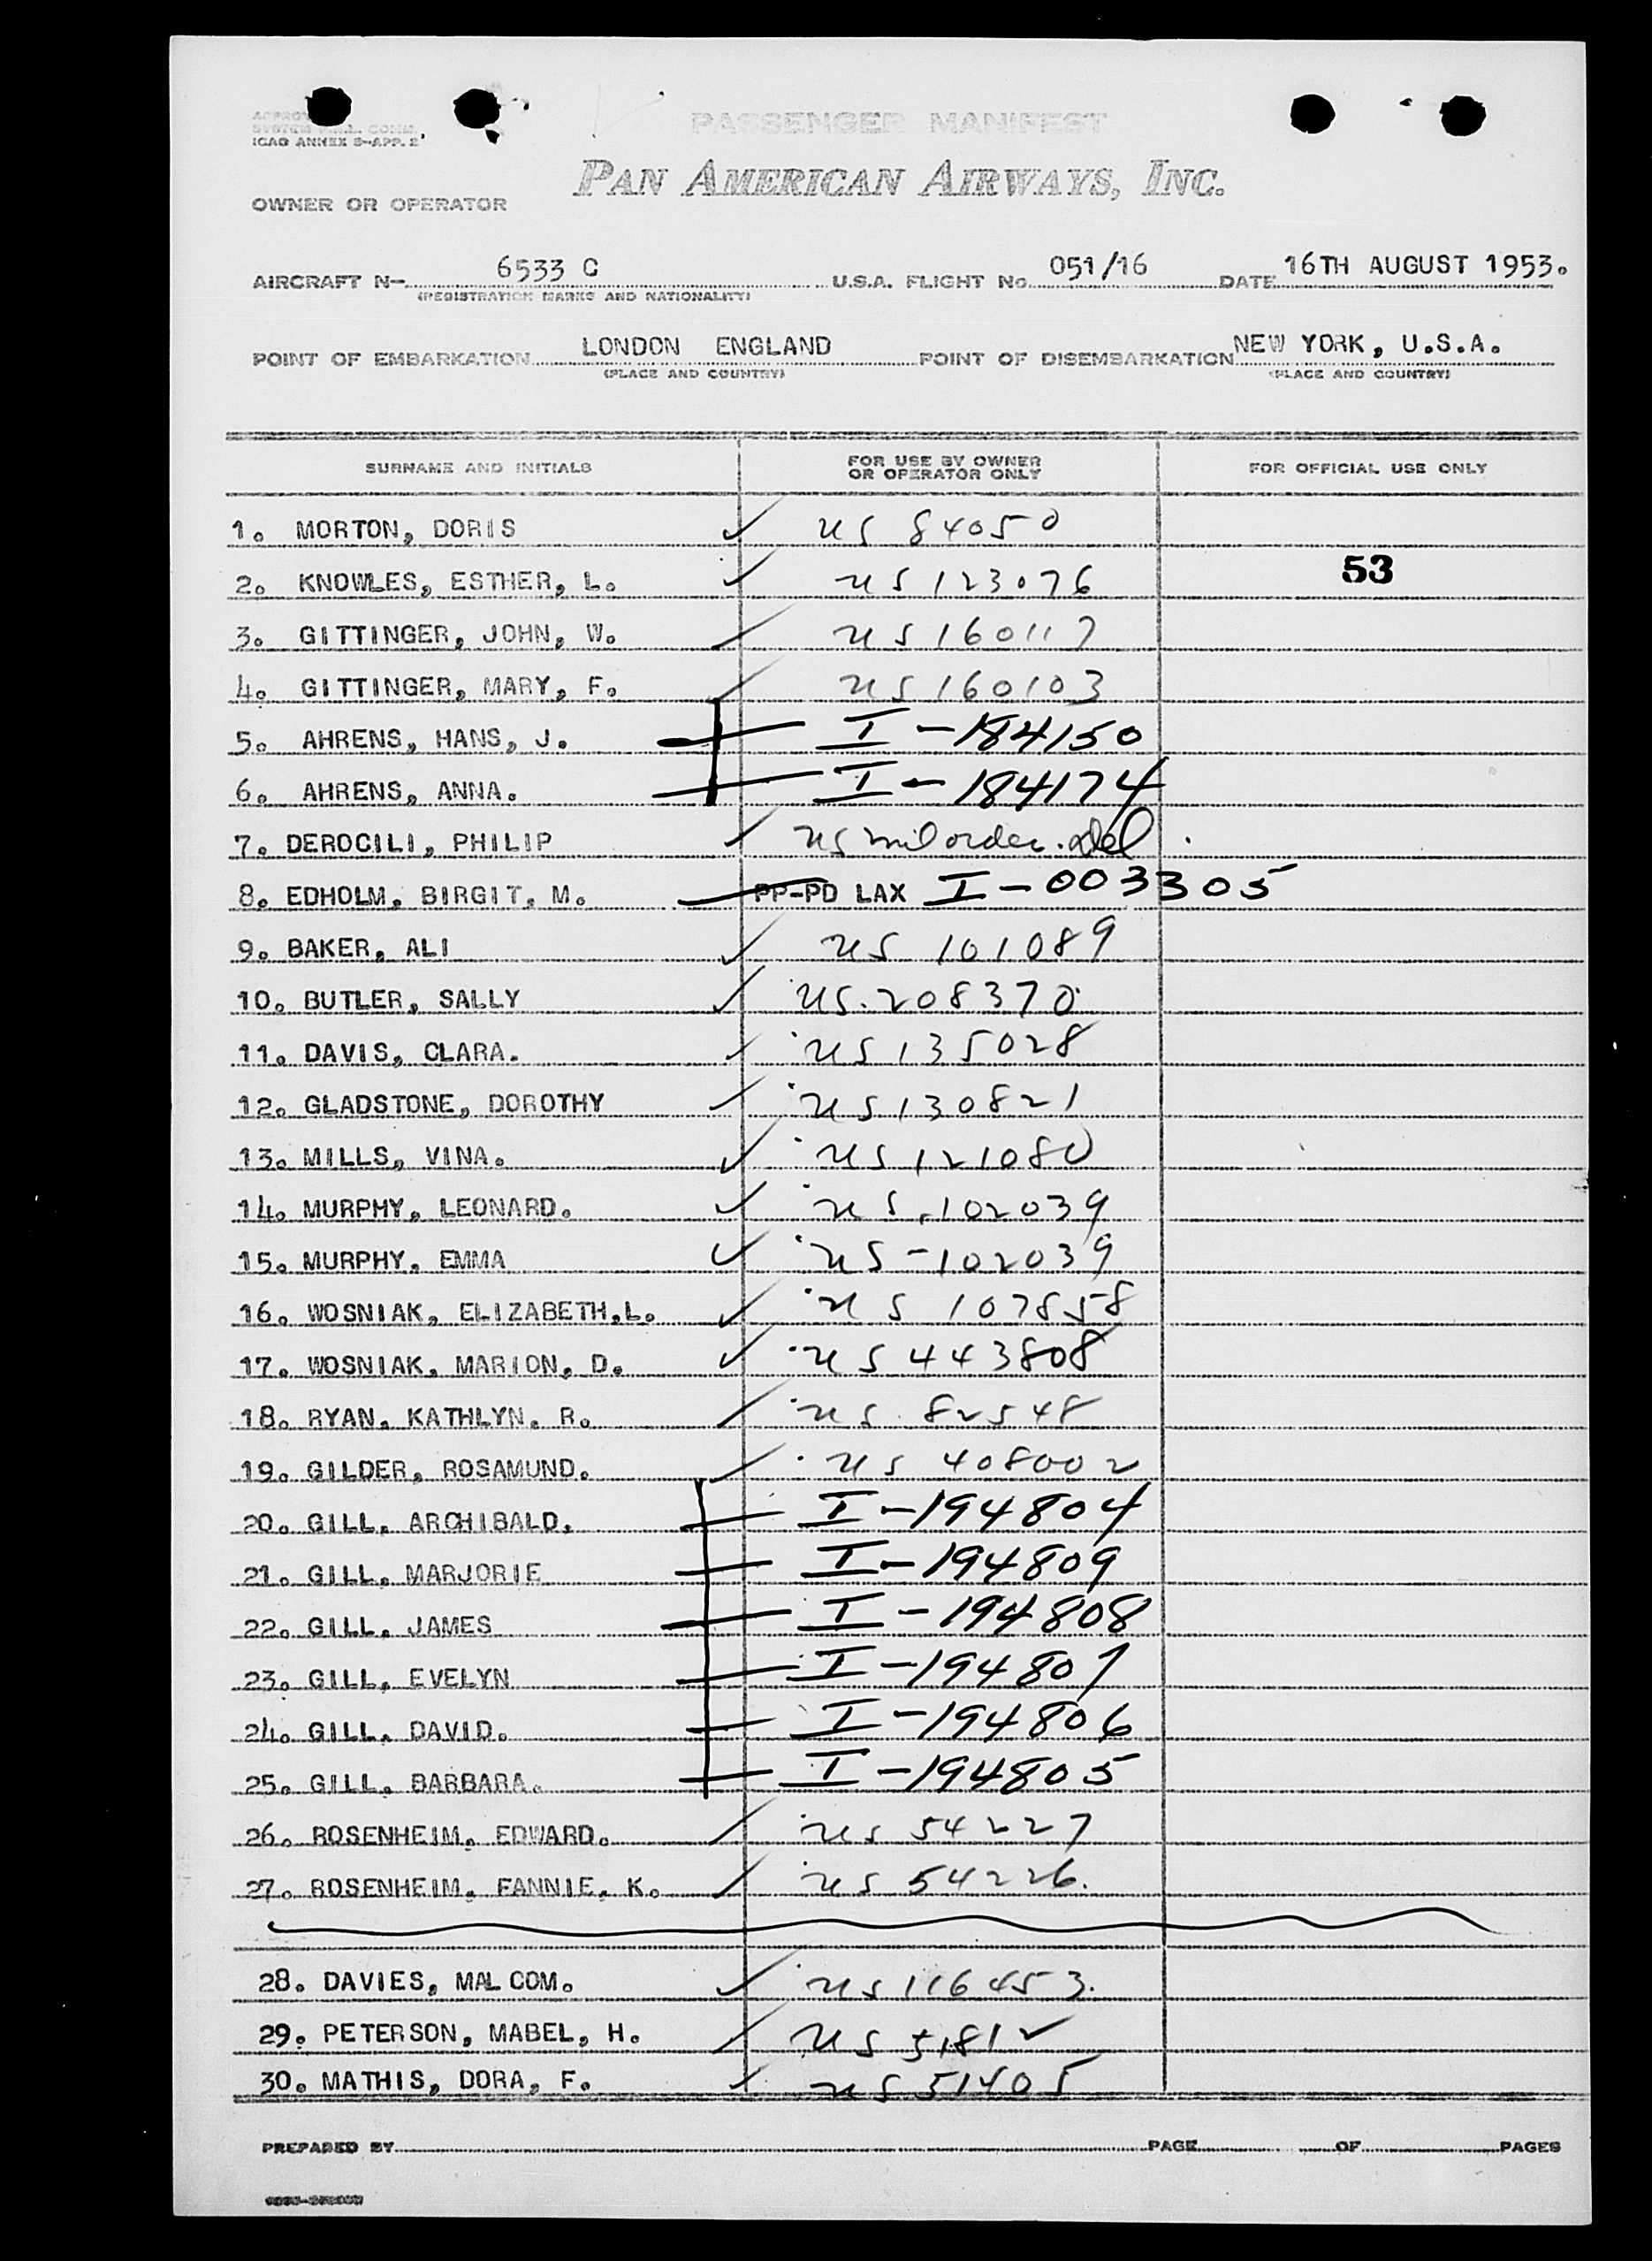 ICAO ANNEX 9-APP. 2
PASSENGER MANIFEST
PAN AMERICAN AIRWAYS, INC.
OWNER OR OPERATOR
AIRCRAFT N- 6533 C U.S.A. FLIGHT No. 051/16 DATE 16TH AUGUST 1953.
(REGISTRATION MARKS AND NATIONALITY)
POINT OF EMBARKATION LONDON ENGLAND POINT OF DISEMBARKATION NEW YORK, U.S.A.
(PLACE AND COUNTRY) (PLACE AND COUNTRY)
SURNAME AND INITIALS FOR USE BY OWNER OR OPERATOR ONLY FOR OFFICIAL USE ONLY
1. MORTON, DORIS US 84050
2. KNOWLES, ESTHER, L. US 123076 53
3. GITTINGER, JOHN, W. US 160117
4. GITTINGER, MARY, F. US 160103
5. AHRENS, HANS, J. I-184150
6. AHRENS, ANNA. I-184174
7. DEROCILI, PHILIP US mil order.
8. EDHOLM, BIRGIT, M. PP-PD LAX I-003305
9. BAKER, ALI US 101089
10. BUTLER, SALLY US.208370
11. DAVIS, CLARA. US 135028
12. GLADSTONE, DOROTHY US 130821
13. MILLS, VINA. US 121080
14. MURPHY, LEONARD. US.102039
15. MURPHY, EMMA US-102039
16. WOSNIAK, ELIZABETH,L. US 107858
17. WOSNIAK, MARION, D. US 443808
18. RYAN, KATHLYN, R. US 82548
19. GILDER, ROSAMUND. US 408002
20. GILL, ARCHIBALD. I-194804
21. GILL, MARJORIE I-194809
22. GILL, JAMES I-194808
23. GILL, EVELYN I-194807
24. GILL, DAVID. I-194806
25. GILL, BARBARA. I-194805
26. ROSENHEIM, EDWARD. US 54227
27. ROSENHEIM, FANNIE, K. US 54226.
28. DAVIES, MALCOM. US 116453.
29. PETERSON, MABEL, H. US
30. MATHIS, DORA, F. US
PREPARED BY PAGE OF PAGES